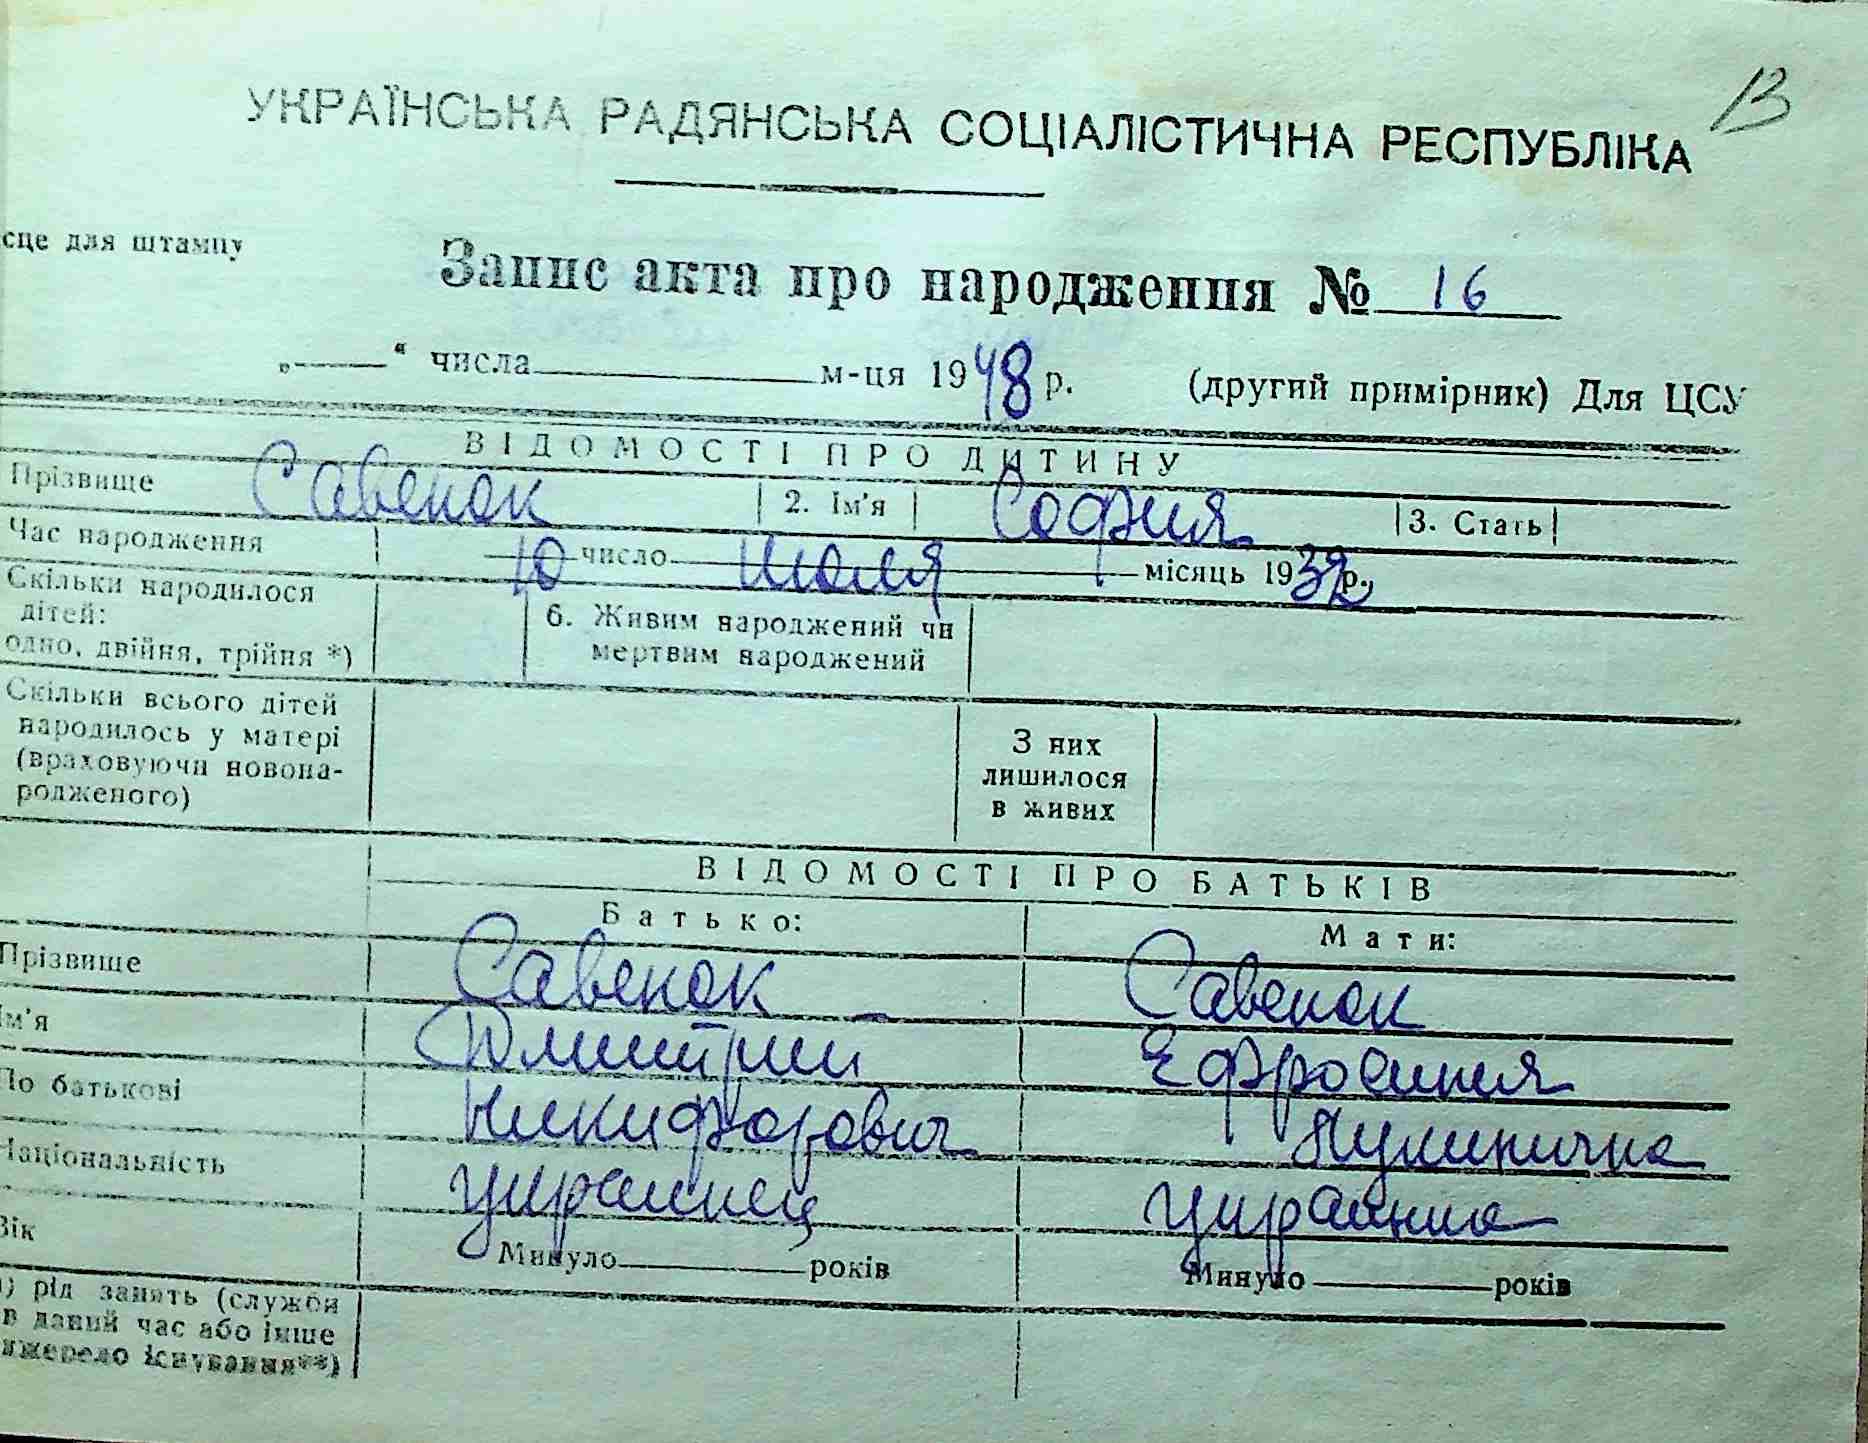 13
УКРАЇНСЬКА РАДЯНСЬКА СОЦІАЛІСТИЧНА РЕСПУБЛІКА
сце для штампу
Запис акта про народження № 16
„ “ числа м-ця 1948 р. (другий примірник) Для ЦСУ
ВІДОМОСТІ ПРО ДИТИНУ
Прізвище Савенок 2. Ім'я София 3. Стать
Час народження 10 число Июля місяць 1932 р.
Скільки народилося дітей: одно, двійня, трійня *)
6. Живим народжений чи мертвим народжений
Скільки всього дітей народилось у матері (враховуючи новонародженого)
З них лишилося в живих
ВІДОМОСТІ ПРО БАТЬКІВ
Батько: Мати:
Прізвище Савенок Савенок
Ім'я Дмитрий Ефросиния
По батькові Никифорович
Національність украинец украинка
Вік Минуло років Минуло років
) рід занять (служби
в даний час або інше
джерело існування**)